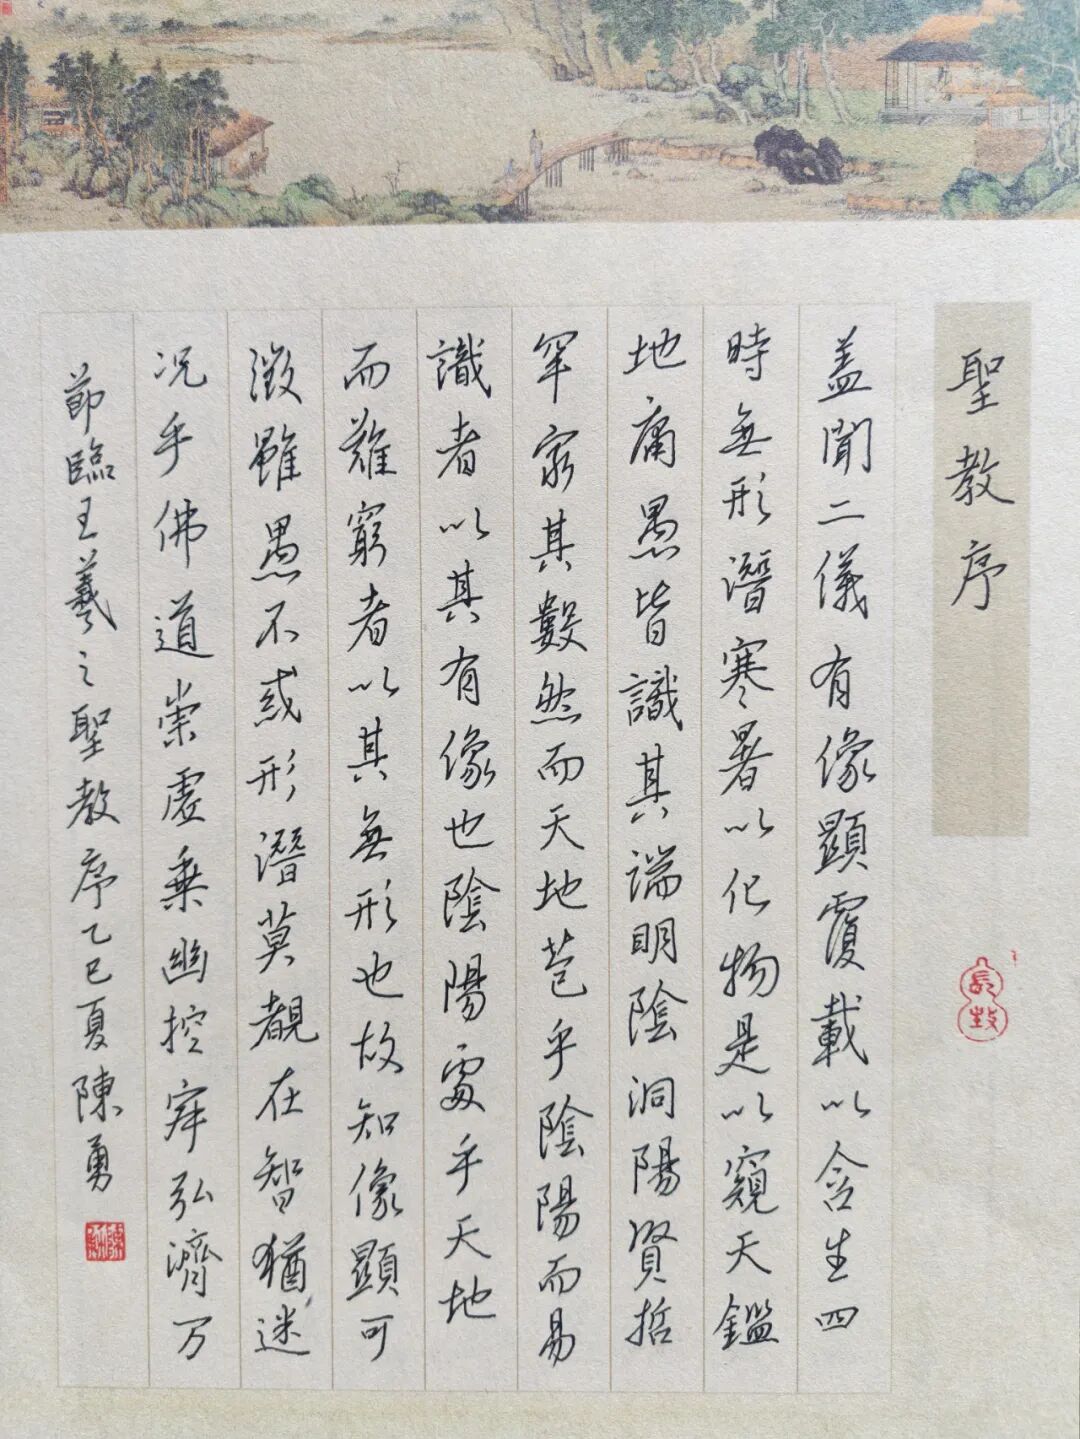 聖教序
盖聞二儀有像顯覆載以含生四
時無形潛寒暑以化物是以窺天鑑
地庸愚皆識其端明陰洞陽賢哲
罕窮其數然而天地苞乎陰陽而易
識者以其有像也陰陽處乎天地
而難窮者以其無形也故知像顯可
徵雖愚不惑形潛莫覩在智猶迷
况乎佛道崇虛乗幽控寂弘濟万
節臨王羲之聖教序乙巳夏陳勇